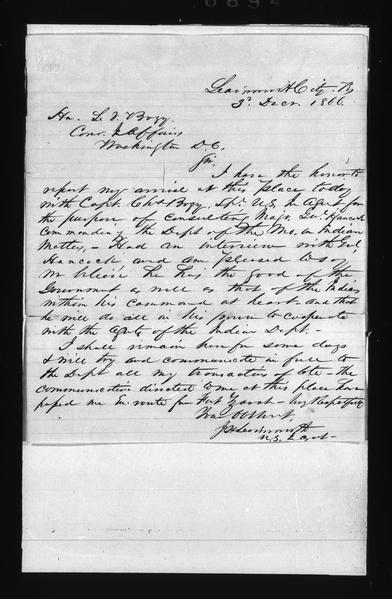 Leavenworth City. K
3d Decr. 1866.
Hon. L. V. Bogy
Com. I. Affairs
Washington D.C.
Sir.
I have the honor to
report my arrival at this place today
with Capt. Chas Bogy, Spl. U.S. I. Agent for
the purpose of consulting Majr. Genl. Hancock
Commanding the Dept of the Mo. on Indian
Matters, - Had an interview with Genl
Hancock and am pleased to say
he has the good of the
Government as well as that of the Indians
within his command at heart and that
he will do all in his power to cooperate
with the Agts of the Indian Dept. -
I shall remain here for some days
& will try and communicate in full to
the Dept all my transactions of late - the
communication directed to me at this place
passed me En route from Fort Zarah - Very Respectfully
Your Obt Servt.
J H Leavenworth
U.S. I. Agent -